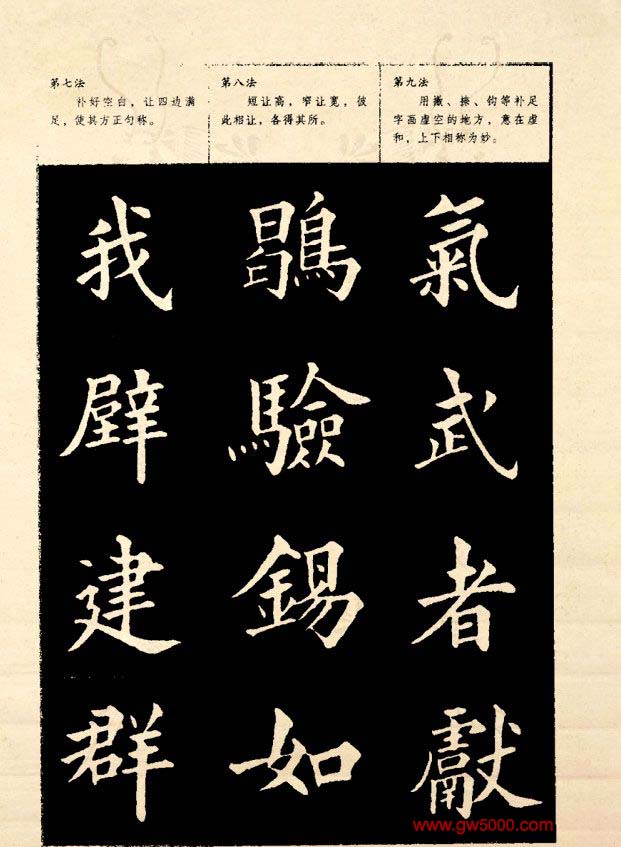 第七法
补好空白，让四边满
足，使其方正匀称。
第八法
短让高，窄让宽，彼
此相让，各得其所。
第九法
用撇、捺、钩等补足
字画虚空的地方，意在虚
和，上下相称为妙。
我辟建群
鶡驗錫如
氣武者獻
www.gw5000.com